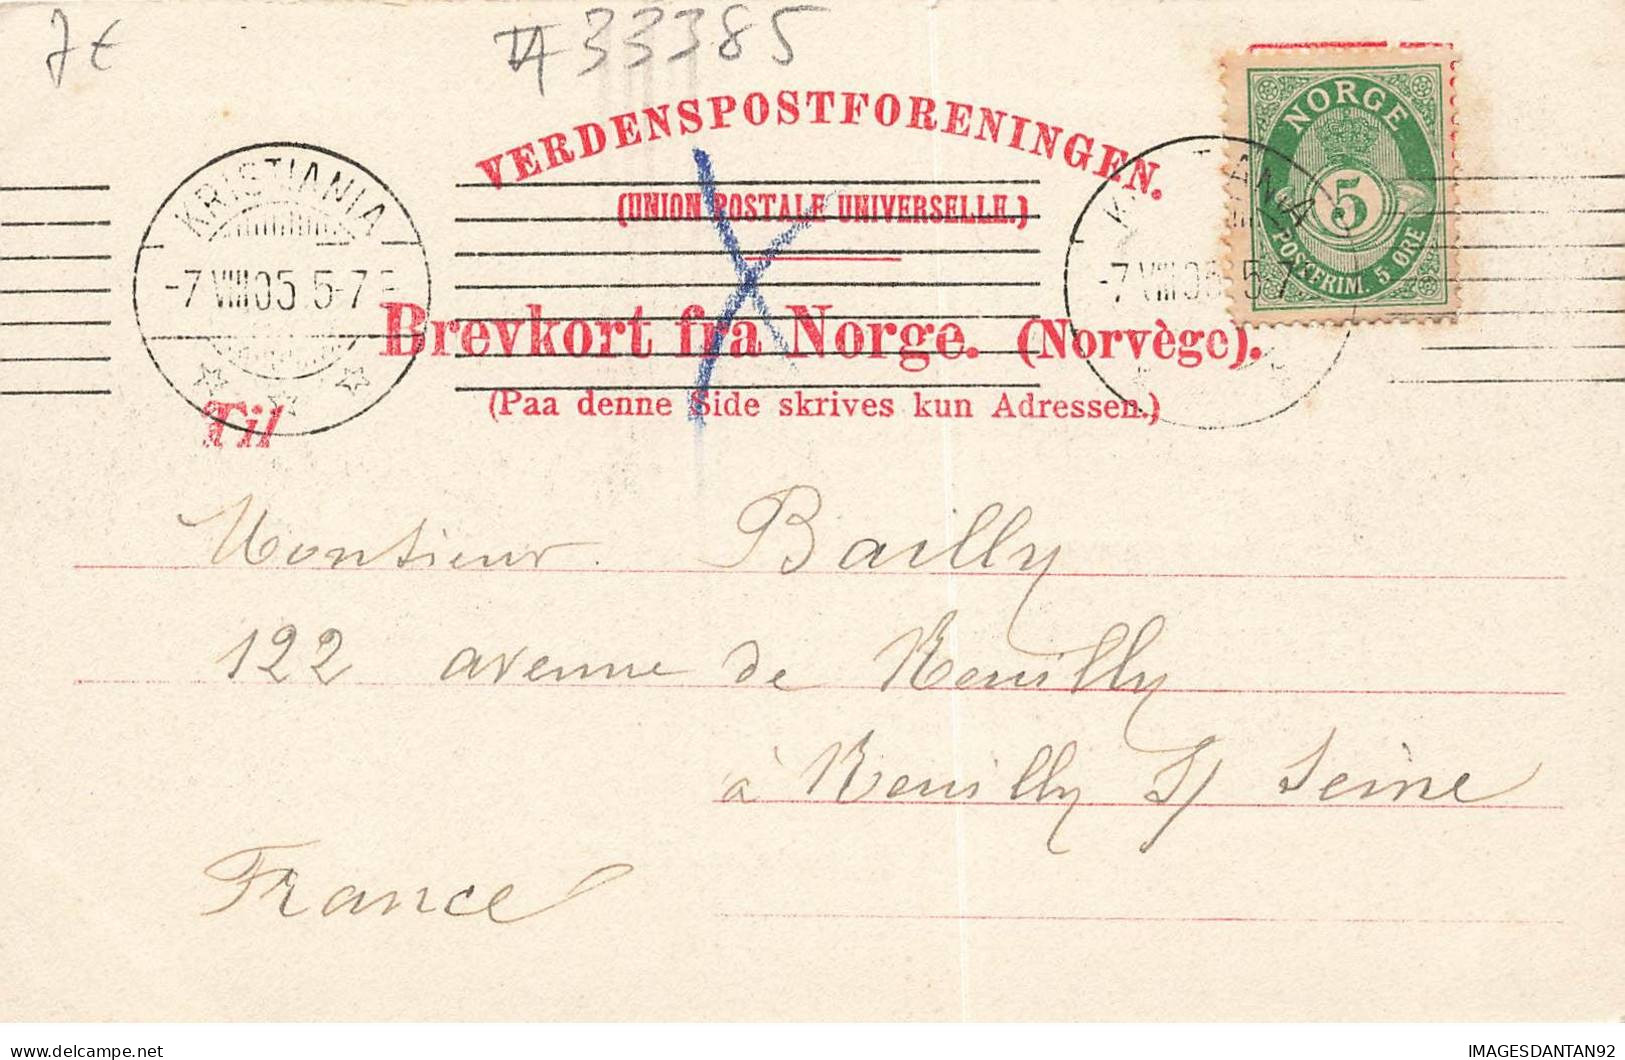 7€
33385
VERDENSPOSTFORENINGEN.
(UNION POSTALE UNIVERSELLE.)
NORGE
5
POSTFRIM. 5 ØRE
KRISTIANIA
-7 VIII 05 5-7 E
-7 VIII 05 5-7
Brevkort fra Norge. (Norvège).
(Paa denne Side skrives kun Adressen.)
Til
Monsieur Bailly
122 avenue de Neuilly
à Neuilly s/ Seine
France
IMAGESDANTAN92